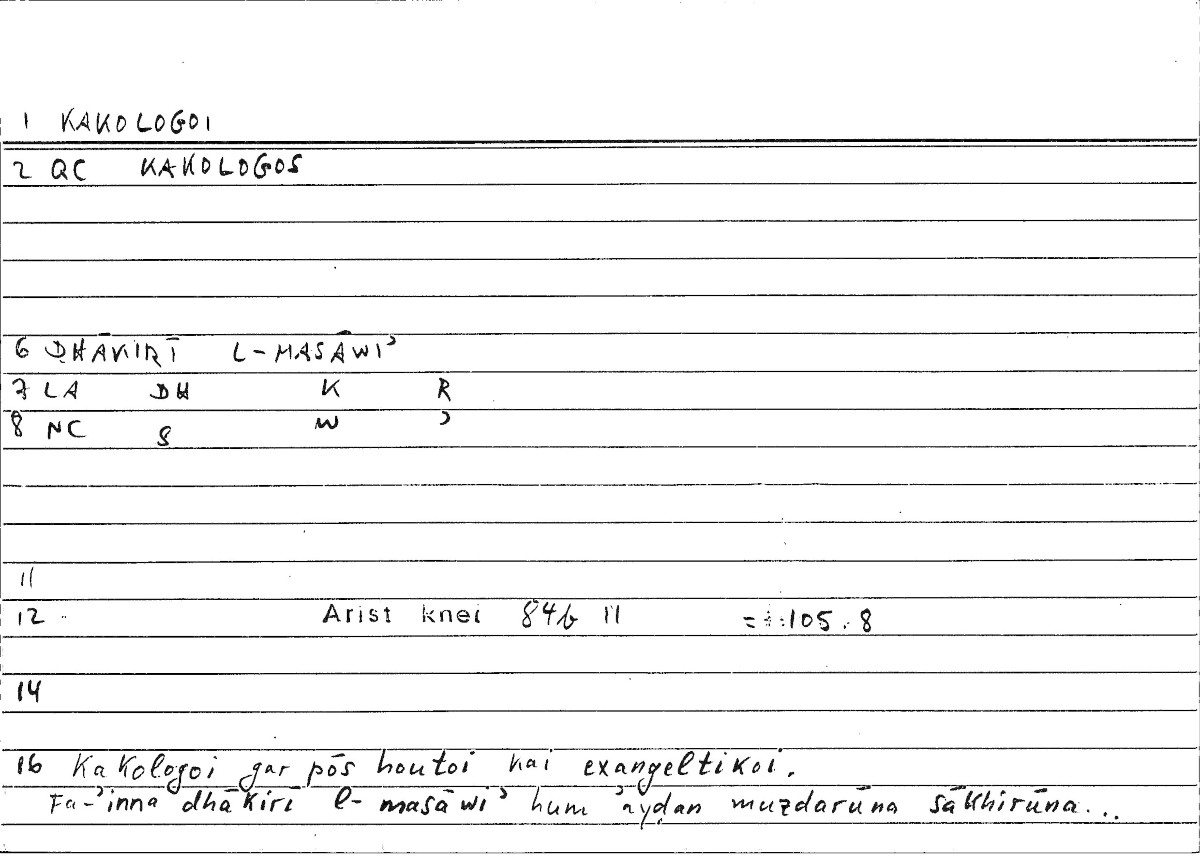 1 KAKOLOGOI
2 QC KAKOLOGOS
6 ḌHĀKIRĪ L-MASĀWIʾ
7 LA DH K R
8 NC S W ʾ
11
12 Arist knei 84b 11 = 105.8
14
16 Kakologoi gar pōs houtoi kai exangeltikoi.
Fa-ʾinna dhākirī l-masāwiʾ hum ʾayḍan muzdarūna sākhirūna...